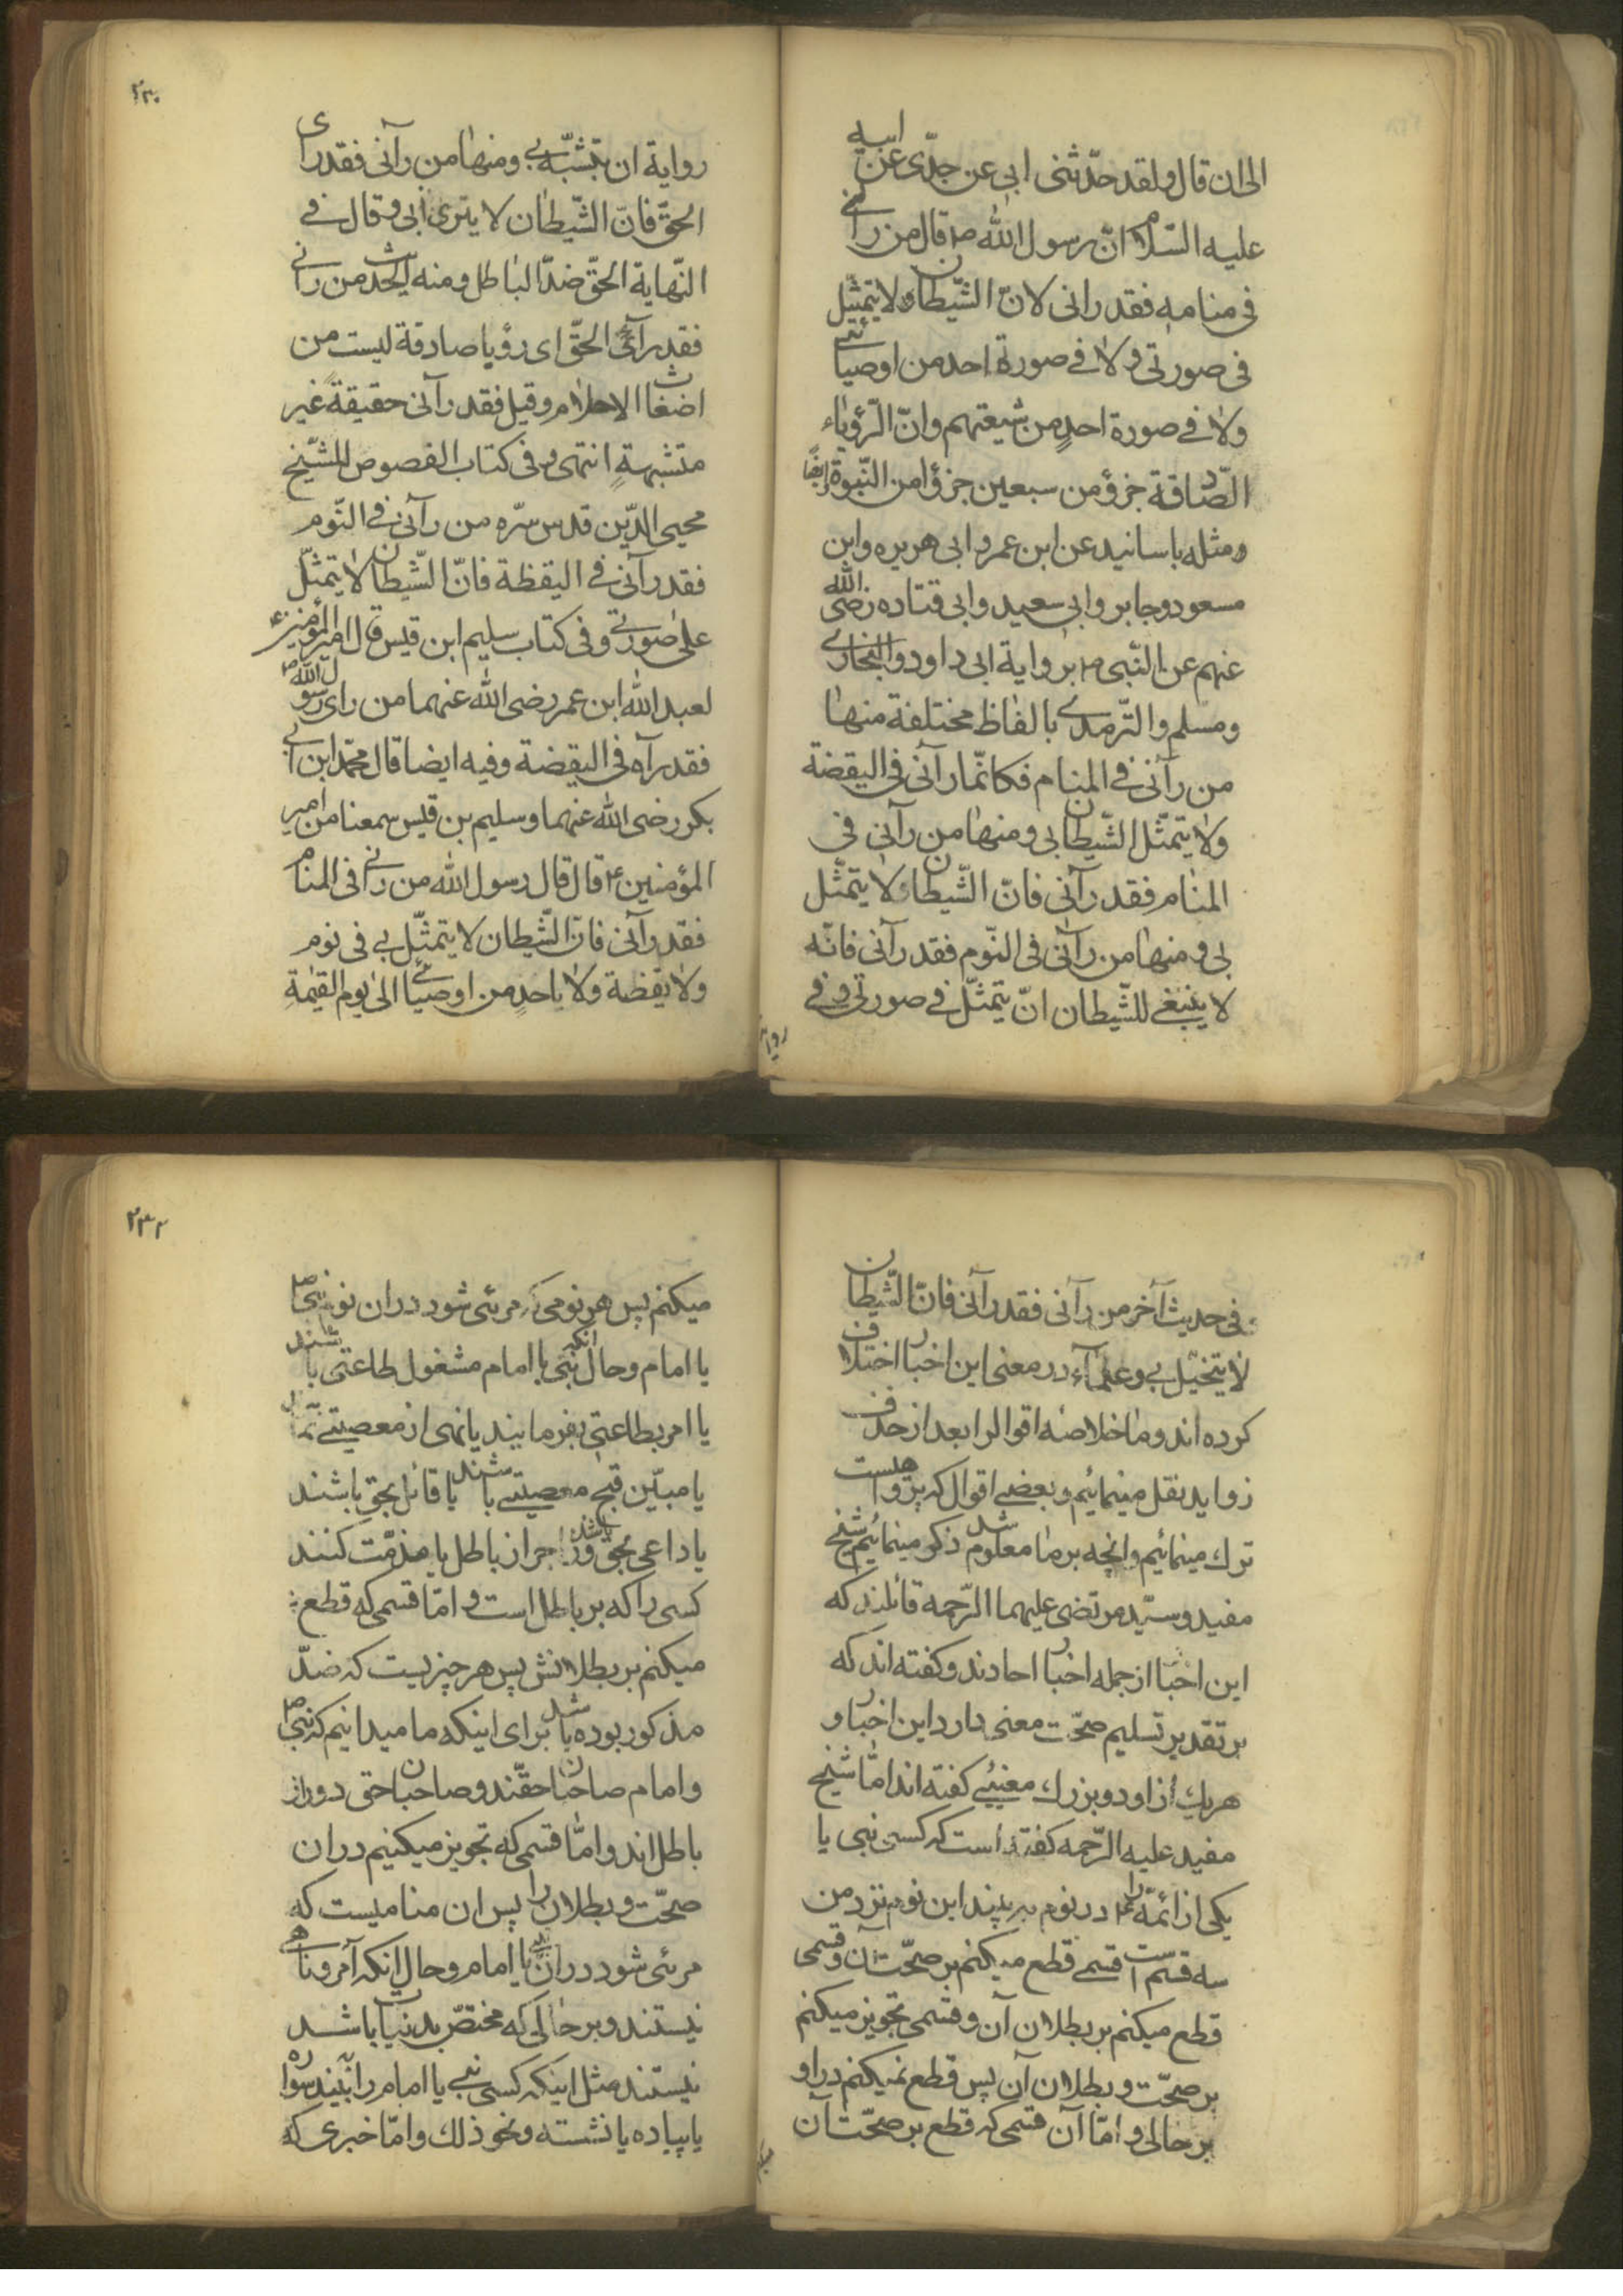 الی ان قال و لقد حدّثنی ابی عن جدّی عن ابیه
علیه السّلام انّ رسول الله ص قال من رانی
فی منامه فقد رانی لانّ الشّیطان لا یتمثّل
فی صورتی و لا فی صورة احد من اوصیائی
ولا فی صورة احدٍ من شیعتهم وانّ الرّؤیاء
الصّادقة جزؤ من سبعین جزؤا من النّبوة ایضًا
ومثله باسانید عن ابن عمر و ابی هریره وابن
مسعود وجابر وابی سعید وابی قتاده رضی الله
عنهم عن النّبی ص بروایة ابی داود والبخاری
ومسلم والتّرمدی بالفاظ مختلفة منها
من رآنی فی المنام فکانّما رآنی فی الیقضة
ولا یتمثّل الشّیطان بی ومنها من رآنی فی
المنام فقد رآنی فانّ الشّیطان لا یتمثّل
بی و منها من رآنی فی النّوم فقد رآنی فانّه
لا ینبغی للشّیطان انّ یتمثّل فی صورتی و فی
روایة
۲۳۰
روایة ان یتشبّه بی ومنها من رآنی فقد رای
الحقّ فانّ الشّیطان لا یترئ ابی و قال فی
النّهایة الحقّ ضدّ الباطل ومنه الحدیث من رانی
فقد رآی الحقّ ای رؤیا صادقة لیست من
اضغاث الاحلام وقیل فقد رآنی حقیقة غیر
متشبهةٍ انتهی و فی کتاب الفصوص للشّیخ
محیی الدّین قدس سرّه من رآنی فی النّوم
فقد رآنی فی الیقظة فانّ الشّیطان لا یتمثّل
علی صورتی وفی کتاب سلیم ابن قیس قال امیر المؤمنین ع
لعبد الله ابن عمر رضی الله عنهما من رای رسول الله ص
فقد رآه فی الیقضة وفیه ایضا قال محمّد ابن ابی
بکر رضی الله عنهما وسلیم بن قیس سمعنا من امیر
المؤمنین ع قال قال رسول الله من رانی فی المنام
فقد رآنی فانّ الشّیطان لا یتمثّل بی فی نوم
ولا یقظة ولا باحدٍ من اوصیائی الی یوم القیمة
و فی حدیث آخر من رآنی فقد رآنی فانّ الشّیطان
لا یتخیّل بی و علمآء در معنی این اخبار اختلاف
کرده اند و ما خلاصهٔ اقوال را بعد از حذف
زواید نقل مینمائیم و بعضی اقوال که پر واهیست
ترك مینمائیم وانچه بر ما معلوم شد ذکر مینمائیم شیخ
مفید و سیّد مرتضی علیهما الرّحمه قائلند که
این اخبار از جمله اخبار احادند و کفته اند که
بر تقدیر تسلیم صحّت معنی دارد این اخبار و
هر یك از او دو بزرك معنیئی کفته اند امّا شیخ
مفید علیه الرّحمه کفته است که کسی نبی یا
یکی از ائمّه ع را در نوم ببیند این نوم نزد من
سه قسم است قسمی قطع میکنم بر صحّت آن و قسمی
قطع میکنم بر بطلان آن و قسمی تجویز میکنم
بر صحّت و بطلان آن پس قطع نمیکنم در او
بر حالی و امّا آن قسمی که قطع بر صحّت آن
میکنم
۲۳۲
میکنم پس هر نومی که مرئی شود در ان نوم نبی ص
یا امام و حال انکه نبی یا امام مشغول طاعتی باشند
یا امر بطاعتی بفرمایند یا نهی از معصیتی نمایند
یا مبیّن قبح معصیتی باشند یا قائل بحق باشند
یا داعی بحق و زاجر از باطل باشند یا مذمّت کنند
کسی را که بر باطل است و امّا قسمی که قطع
میکنم بر بطلانش پس هر چیزیست که ضدّ
مذکور بوده باشد برای اینکه ما میدانیم که نبی ص
و امام صاحبان حقّند و صاحبان حق دور از
باطل اند و امّا قسمی که تجویز میکنیم در ان
صحّت و بطلان را پس ان منامیست که
مرئی شود در ان نبی یا امام و حال انکه آمر و ناهی
نیستند و بر حالی که مختصّ بدنیا باشد
نیستند مثل اینکه کسی نبی یا امام را ببیند سواره
یا پیاده یا نشسته و نحو ذلك و امّا خبری که